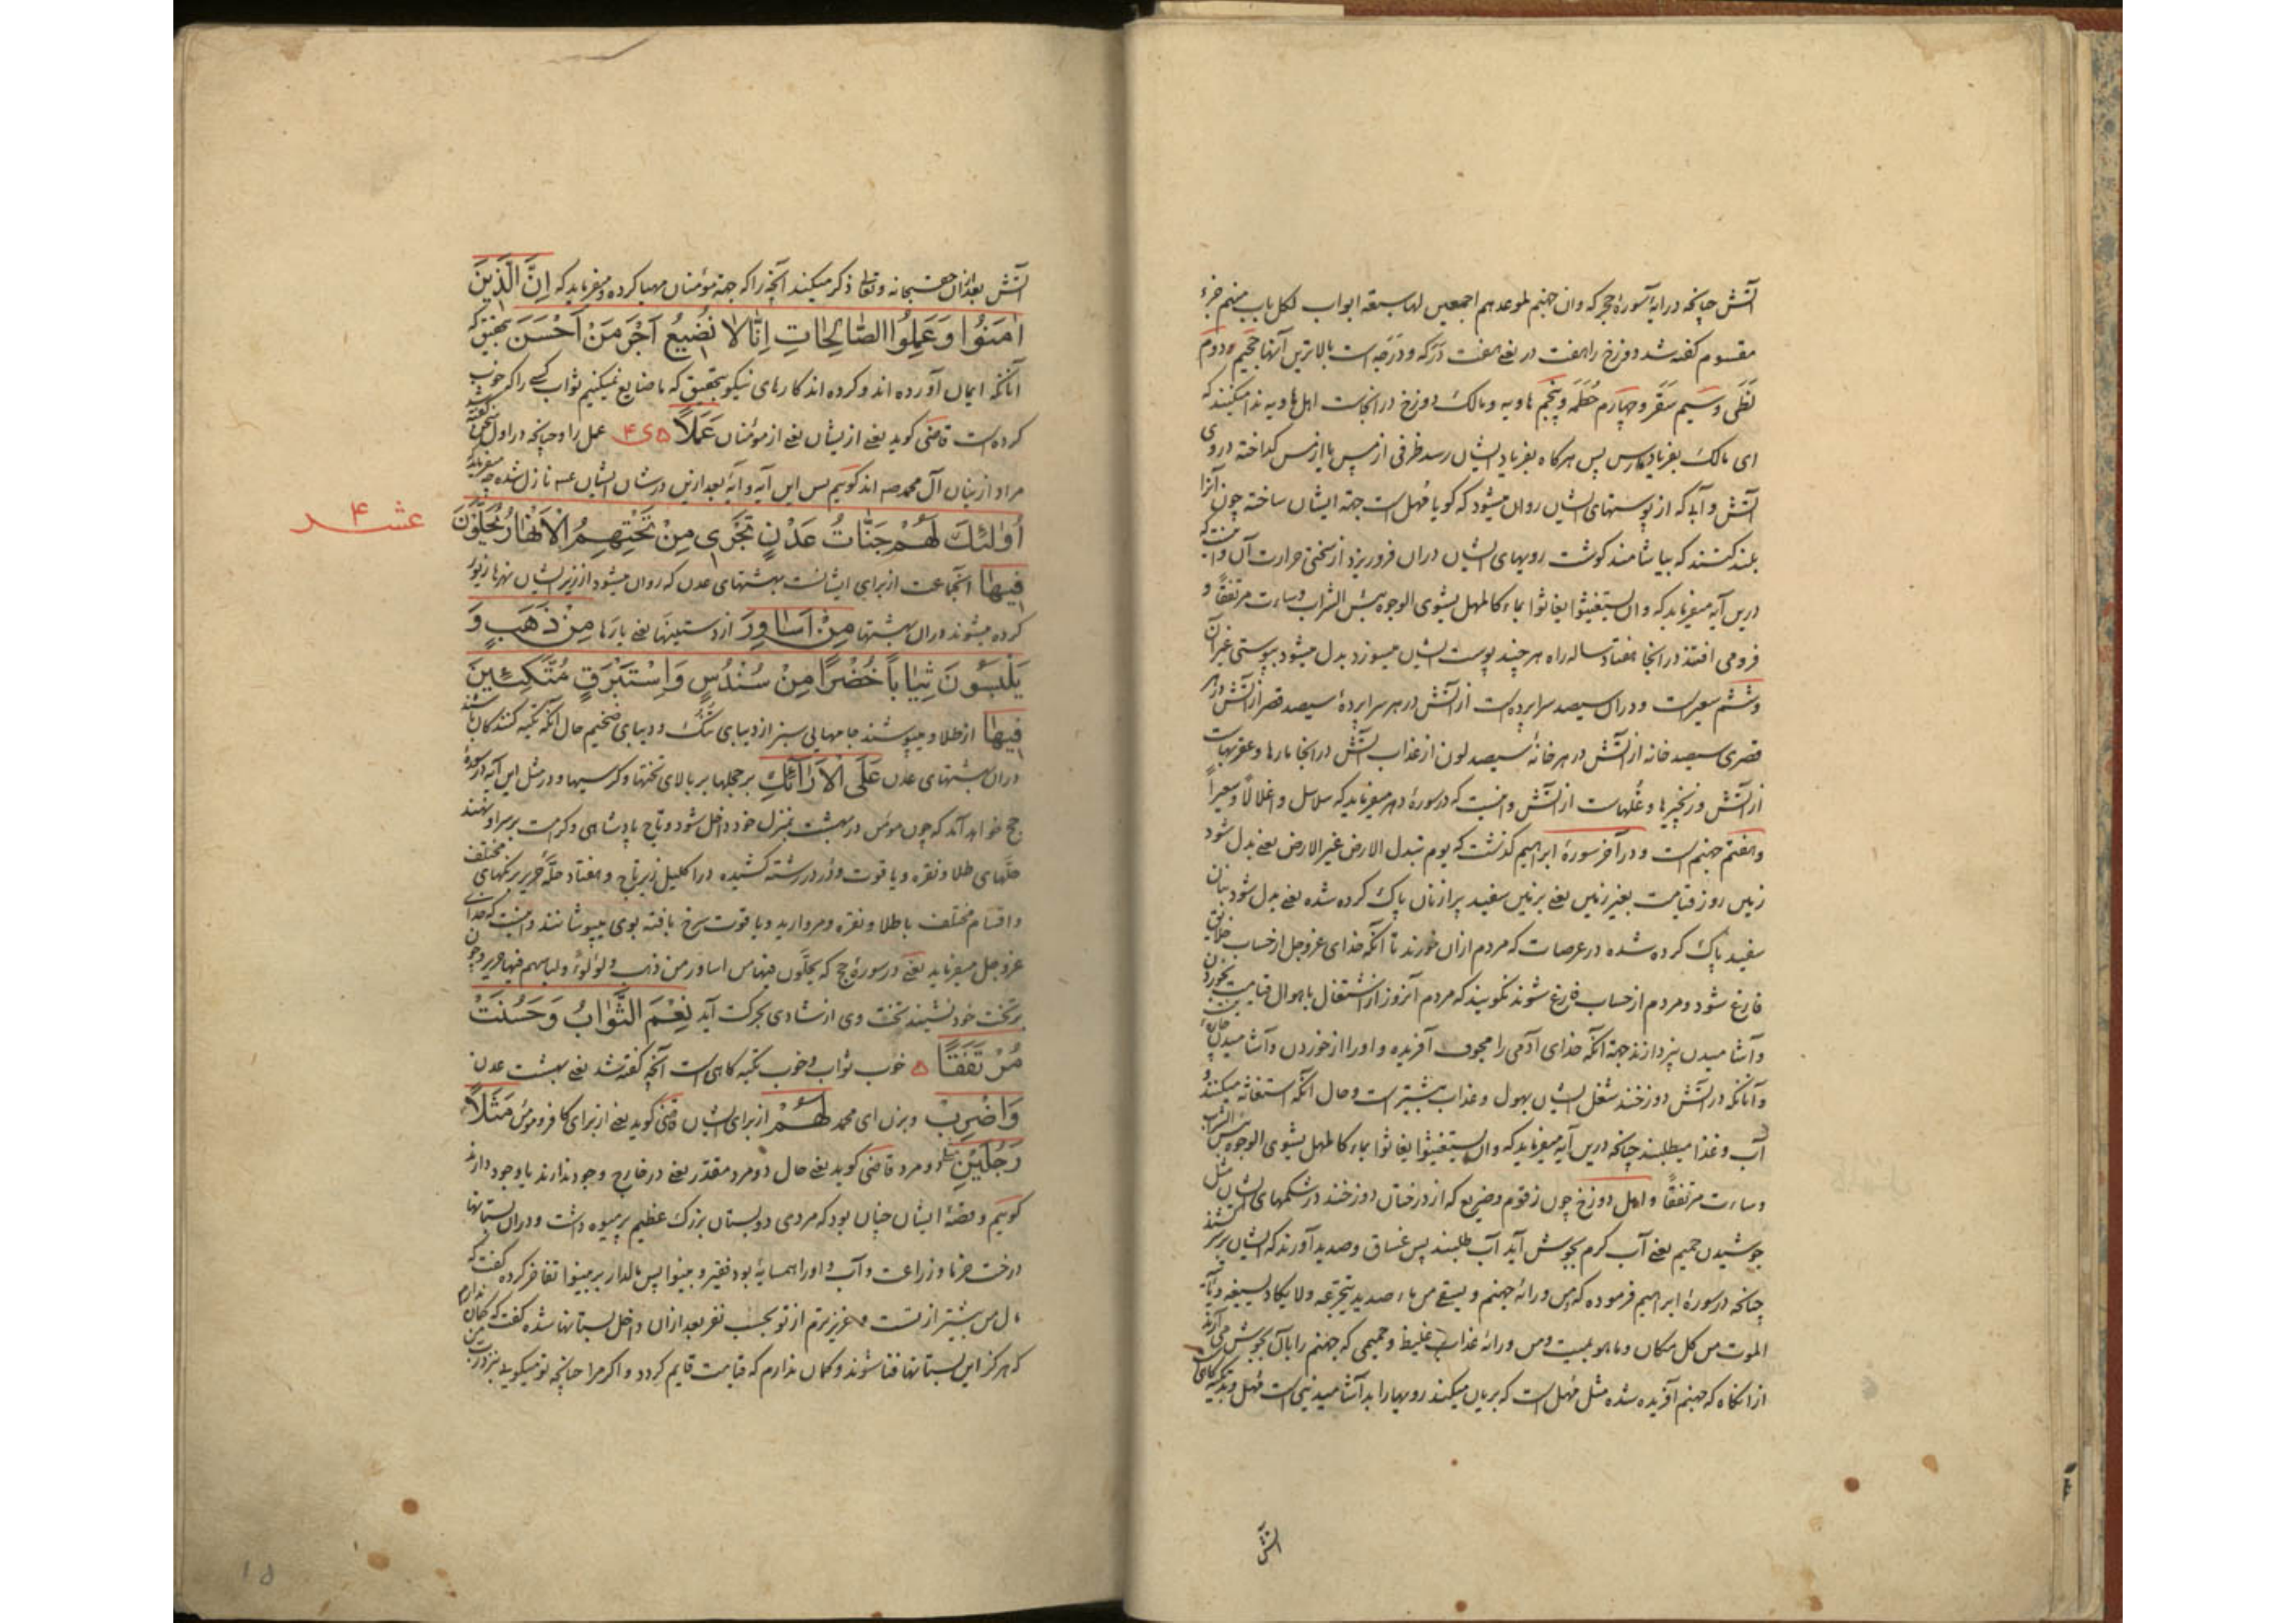 آتش چنانچه در آیهٔ سورهٔ حجر که وان جهنم لموعدهم اجمعین لها سبعة ابواب لکل باب منهم جزء
مقسوم گفته شد دوزخ را هفت در یعنی هفت درکه و درجه است بالاترین آنها جحیم و دوم
لَظَی و سیم سَقَر و چهارم حُطَمَه و پنجم هاویه و مالک دوزخ در آنجاست اهل هاویه ندا میکنند که
ای مالک بفریاد ما رس پس هرگاه بفریاد ایشان رسد ظرفی از مس یا از مس گداخته در وی
آتش و آبی که از پوستهای ایشان روان میشود که گویا مُهل است جهة ایشان ساخته چون آنرا
بلند کنند که بیاشامند گوشت رویهای ایشان در آن فرو ریزد از سختی حرارت آن و اینست که
درین آیه میفرماید که وان یستغیثوا یغاثوا بماء کالمهل یشوی الوجوه بئس الشراب وساءت مرتفقاً و
فرو می افتند در آنجا هفتاد ساله راه هر چند پوست ایشان میسوزد بدل میشود بپوستی غیر آن
و ششم سعیر است و در آن سیصد سراپرده است از آتش در هر سراپردهٔ سیصد قصر از آتش در هر
قصری سیصد خانه از آتش در هر خانهٔ سیصد لون از عذاب آتش در آنجا مارها و عقربهاست
از آتش و زنجیرها و غلهاست از آتش و اینست که در سورهٔ دهر میفرماید که سلاسل و اغلالا و سعیراً
و هفتم جهنم است و در آخر سورهٔ ابراهیم گذشت که یوم تبدل الارض غیر الارض یعنی بدل شود
زمین روز قیامت بغیر زمین یعنی بزمین سفید پر از نان پاک کرده شده یعنی بدل شود بنان
سفید پاک کرده شده در عرصات که مردم از آن خورند تا آنکه خدای عزوجل از حساب خلایق
فارغ شود و مردم از حساب فارغ شوند نگویند که مردم آنروز از اشتغال باهوال قیامت بخوردن
و آشامیدن نپردازند جهة آنکه خدای آدمی را مجوف آفریده و او را از خوردن و آشامیدن چاره
و آنانکه در آتش دوزخند شغل ایشان بهول و عذاب بیشتر است و حال آنکه استغاثه میکنند و
آب و غذا میطلبند چنانچه درین آیه میفرماید که وان یستغیثوا یغاثوا بماء کالمهل یشوی الوجوه بئس الشراب
وساءت مرتفقاً و اهل دوزخ چون زقوم و ضریع که از درختان دوزخند در شکمهای ایشان مثل
جوشیدن حمیم یعنی آب گرم بجوش آید آب طلبند پس غساق و صدید آورند که ایشان
چنانچه در سورهٔ ابراهیم فرموده که من ورائه جهنم ویسقی من ماء صدید یتجرعه ولا یکاد یسیغه ویاتیه
الموت من کل مکان وما هو بمیت ومن ورائه عذاب غلیظ و حمیمی که جهنم را بآن بجوش می آرند
از آنگاه که جهنم آفریده شده مثل مُهل است که بریان میکند رویها را بد آشامیدنی است مُهل و بد تکیه گاهی
آتش
آتش بعد از آن حق سبحانه وتعالی ذکر میکند آنچه را که جهة مؤمنان مهیا کرده و میفرماید که اِنَّ الَّذِینَ
اٰمَنُوا وَعَمِلُوا الصَّالِحَاتِ اِنَّا لَا نُضِیعُ اَجْرَ مَنْ اَحْسَنَ بتحقیق که
آنانکه ایمان آورده اند و کرده اند کارهای نیکو بتحقیق که ما ضایع نمیکنیم ثواب کسی را که خوب
کرده است قاضی گوید یعنی از ایشان یعنی از مؤمنان عَمَلًا عمل را و چنانچه در اول
مراد از بیان آل محمد صه اند گوییم پس این آیه و آیهٔ بعد ازین در شأن ایشان نازل شده چه میفرماید که
اُولٰئِكَ لَهُمْ جَنَّاتُ عَدْنٍ تَجْرِی مِنْ تَحْتِهِمُ الْاَنْهَارُ یُحَلَّوْنَ
عشر ۴
فِیهَا آنجماعت از برای ایشانست بهشتهای عدن که روان میشود از زیر ایشان نهرها زیور
کرده میشوند در آن بهشتها مِنْ اَسَاوِرَ از دستینها یعنی یارها مِنْ ذَهَبٍ وَ
یَلْبَسُونَ ثِیَابًا خُضْرًا مِنْ سُنْدُسٍ وَاِسْتَبْرَقٍ مُتَّکِئِینَ
فِیهَا از طلا و میپوشند جامهایی سبز از دیبای تنک و دیبای ضخیم حال آنکه تکیه کنندگان باشند
در آن بهشتهای عدن عَلَی الْاَرَائِكِ بر حجلها بر بالای تختها و کرسیها و در مثل این آیه در سورهٔ
حج خواهد آمد که چون مؤمن در بهشت بمنزل خود داخل شود و تاج پادشاهی و کرامت بر سر او نهند
حلّهای طلا و نقره و یاقوت و در در رشته کشیده در اکلیل زیر تاج و هفتاد حلّهٔ حریر برنگهای مختلف
و اقسام مختلف با طلا و نقره و مروارید و یاقوت سرخ بافته بوی بپوشانند و اینست که خدای
عزوجل میفرماید یعنی در سورهٔ حج که یحلّون فیها من اساور من ذهب ولؤلؤا ولباسهم فیها حریر و چون
بر تخت خود نشیند تخت وی از شادی بحرکت آید نِعْمَ الثَّوَابُ وَحَسُنَتْ
مُرْتَفَقًا خوب ثواب و خوب تکیه گاهی است آنچه گفته شد یعنی بهشت عدن
وَاضْرِبْ و بزن ای محمد لَهُمْ از برای ایشان قاضی گوید یعنی از برای کافر و مؤمن مَثَلًا
رَجُلَیْنِ دو مرد قاضی گوید یعنی حال دو مرد مقدر یعنی در خارج وجود ندارند یا وجود دارند
گوییم و قصهٔ ایشان چنان بود که مردی دو بستان بزرگ عظیم پر میوه داشت و در آن بستانها
درخت خرما و زراعت و آب و او را همسایهٔ بود فقیر و بینوا پس مالدار بر بینوا تفاخر کرده گفت که
مال من بیشتر از تست و عزیزترم از تو بحسب نفر بعد از آن داخل بستانها شده گفت که گمان ندارم
که هرگز این بستانها فنا شوند و گمان ندارم که قیامت قایم گردد و اگر مرا چنانچه تو میگویی
۱۵